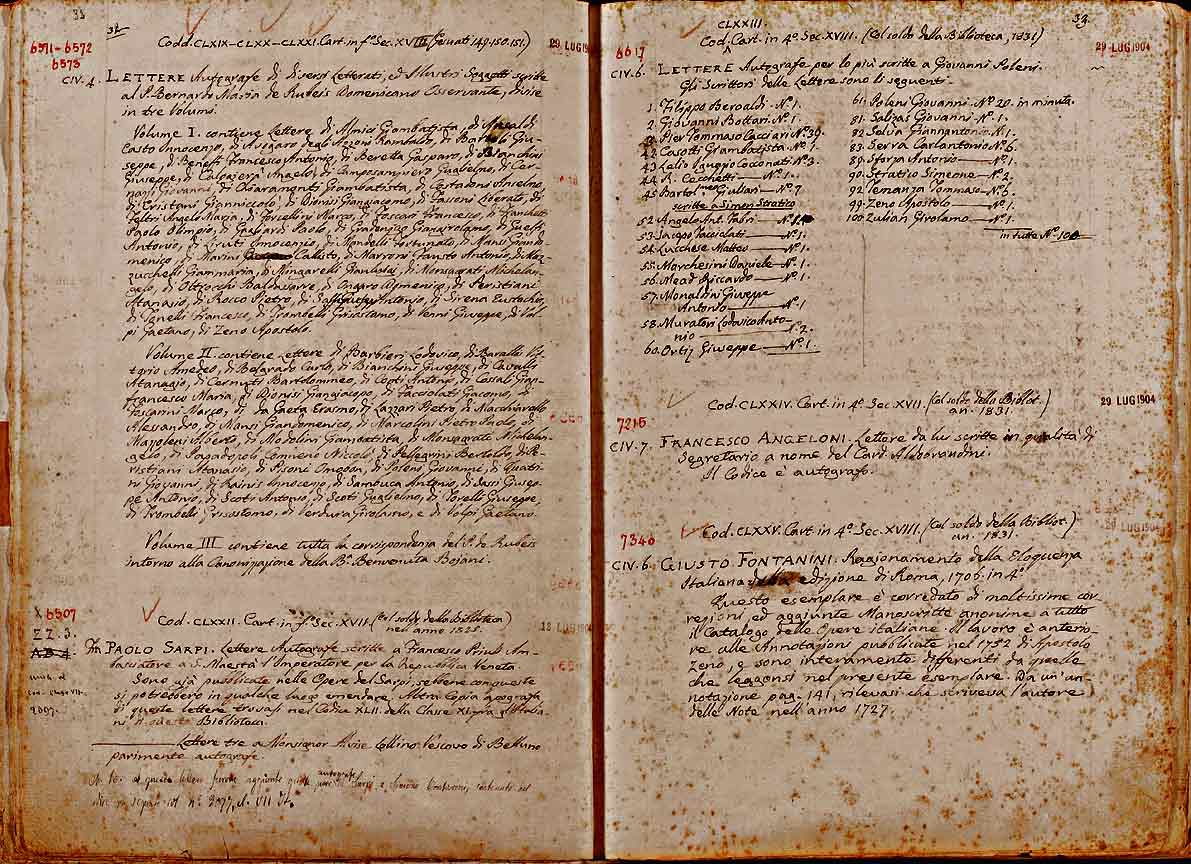 32
6571-6572
6573
Codd. CLXIX-CLXX-CLXXI. Cart. in fº. Sec. XVIII (Gesuati 149.150.151.)
29 LUG
CIV. 4
LETTERE Autografe di diversi Letterati, ed Illustri Soggetti scritte
al P. Bernardo Maria de Rubeis Domenicano Osservante, divise
in tre Volumi.
Volume I. contiene Lettere di Almici Giambattista, di Ansaldi
Casto Innocenzo, di Avogaro degli Azzoni Rambaldo, di Giu-
seppe, di Francesco Antonio, di Bereta Gasparo, di Bianchini
Giuseppe, di Calogierà Angelo, di Camposampiero Guglielmo, di
Giovanni, di Chiaramonti Giambattista, di Costadoni Anselmo,
di Cristani Gianniccolo, di Dionisi Giangiacomo, di Fassoni Liberato, di
Feltri Angelo Maria, di Forcellini Marco, di Foscari Francesco, di
Paolo Olimpio, di Gagliardi Paolo, di Gradenigo Giangirolamo, di
Antonio, di Liruti Innocenzo, di Mandelli Fortunato, di Mansi Giando-
menico, di Marini Callisto, di Marroni Fausto Antonio, di Maz-
zuchelli Giammaria, di Mingarelli Ganluigi, di Monsagrati Michelan-
gelo, di Oltrocchi Baldassarre, di Ongaro Domenico, di Peristiani
Atanasio, di Rocco Pietro, di Antonio, di Sirena Eustachio,
di Francesco, di Trombelli Grisostomo, di Venni Giuseppe, di Vol-
pi Gaetano, di Zeno Apostolo.
Volume II. contiene Lettere di Barbieri Lodovico, di
Amedeo, di Belgrado Carlo, di Bianchini Giuseppe, di Cavalli
Atanagio, di Cernuti Bartolommeo, di Conti Antonio, di Cossali Gian-
francesco Maria, di Dionisi Giangiacopo, di Facciolati Giacomo, di
Foscarini Marco, di da Gaeta Erasmo, di Lazzari Pietro, di Macchiavello
Alessandro, di Mansi Giandomenico, di Marcolini Pietro Paolo, di
Mazzoleni Alberto, di Modolini Giambatista, di Monsagrati Michelan-
gelo, di Papadopoli Comneno Nicolò, di Pellegrini Bertoldo, di Pe-
ristiani Atanasio, di Pisoni Omobon, di Poleni Giovanni, di Quatri-
ni Giovanni, di Rainis Innocenzo, di Sambuca Antonio, di Sassi Giusep-
pe Antonio, di Scoti Antonio, di Scoti Guglielmo, di Torelli Giuseppe,
di Trombelli Grisostomo, di Verdura Girolamo, e di Volpi Gaetano.
Volume III contiene tutta la corrispondenza del P. de Rubeis
intorno alla Canonizzazione della B. Benvenuta Bojani.
X 6507
ZZ. 3.
AB 4.
Cod. CLXXII. Cart. in fº. Sec. XVII. (Col soldo della Biblioteca)
nell'anno 1828.
12 LUG 190
PAOLO SARPI. Lettere Autografe scritte a Francesco Priuli Am-
basciatore a S. Maestà l'Imperatore per la Repubblica Veneta.
Sono già pubblicate nelle Opere del Sarpi, sebbene con queste
si potrebbero in qualche luogo emendare. Altra Copia apografa
di queste lettere trovasi nel Codice XLII. della Classe XI. fra gl'Italia-
ni di questa Biblioteca.
Lettere tre a Monsignor Alvise Lollino Vescovo di Belluno
parimente autografe.
N. B. a queste lettere furono aggiunte autografe
nº 2097, cl. VII It.
CLXXIII.
33
6617
Cod. Cart. in 4º. Sec. XVIII. (Col soldo della Biblioteca, 1831)
29 LUG 1904
CIV. 6.
LETTERE Autografe per lo più scritte a Giovanni Poleni.
Gli Scrittori delle Lettere sono li seguenti.
1. Filippo Beroaldi - Nº. 1.
2. Giovanni Bottari. Nº. 1.
3. Pier Tommaso Cacciari Nº 39.
42. Casotti Giambattista. Nº. 1
43. Lelio Ignazio Cocconati Nº. 3.
44. R. Cecchetti — Nº. 1.
45. Bartolᵐᵉᵒ Giuliari — Nº. 7
scritte a Simon Stratico
52. Angelo Ant. Fabri — Nº 1
53. Jacopo Facciolati — Nº 1.
54. Lucchese Matteo — Nº 1.
55. Marchesini Daniele — Nº. 1.
56. Mead Riccardo — Nº. 1.
57. Monaldini Giuseppe
Antonio — Nº. 1
58. Muratori Lodovico Anto-
nio — 2.
60. Ortiz Giuseppe — Nº. 1.
61. Poleni Giovanni. Nº 20. in minuta.
81. Salizas Giovanni — Nº 1.
82. Salvia Giannantonio Nº. 1.
83. Serra Carlantonio Nº 6.
89. Sforza Antonio — Nº. 1.
90. Stratico Simeone — Nº. 2.
92. Temanza Tommaso — Nº 6.
99. Zeno Apostolo — Nº 1.
100. Zulian Girolamo — Nº. 1.
in tutte Nº 100
7215
Cod. CLXXIV. Cart. in 4º. Sec. XVII. (Col soldo della Bibliot.)
an. 1831.
29 LUG 1904
CIV. 7.
FRANCESCO ANGELONI. Lettere da lui scritte in qualità di
Segretario a nome del Card. Aldobrandini.
Il Codice è autografo.
7340
Cod. CLXXV. Cart. in 4º. Sec. XVIII. (Col soldo della Bibliot.)
an. 1831.
29 LUG 1904
CIV. 6
GIUSTO FONTANINI. Raggionamento della Eloquenza
Italiana edizione di Roma, 1706. in 4º
Questo esemplare è corredato di moltissime cor
rezioni, ed aggiunte Manoscritte anonime a tutto
il Catalogo delle Opere italiane. Il lavoro è anterio-
re alle Annotazioni pubblicate nel 1752 di Apostolo
Zeno, e sono interamente differenti da quelle
che leggonsi nel presente esemplare. Da un'an-
notazione pag. 141, rilevasi che scriveva l'autore
delle Note nell'anno 1727.